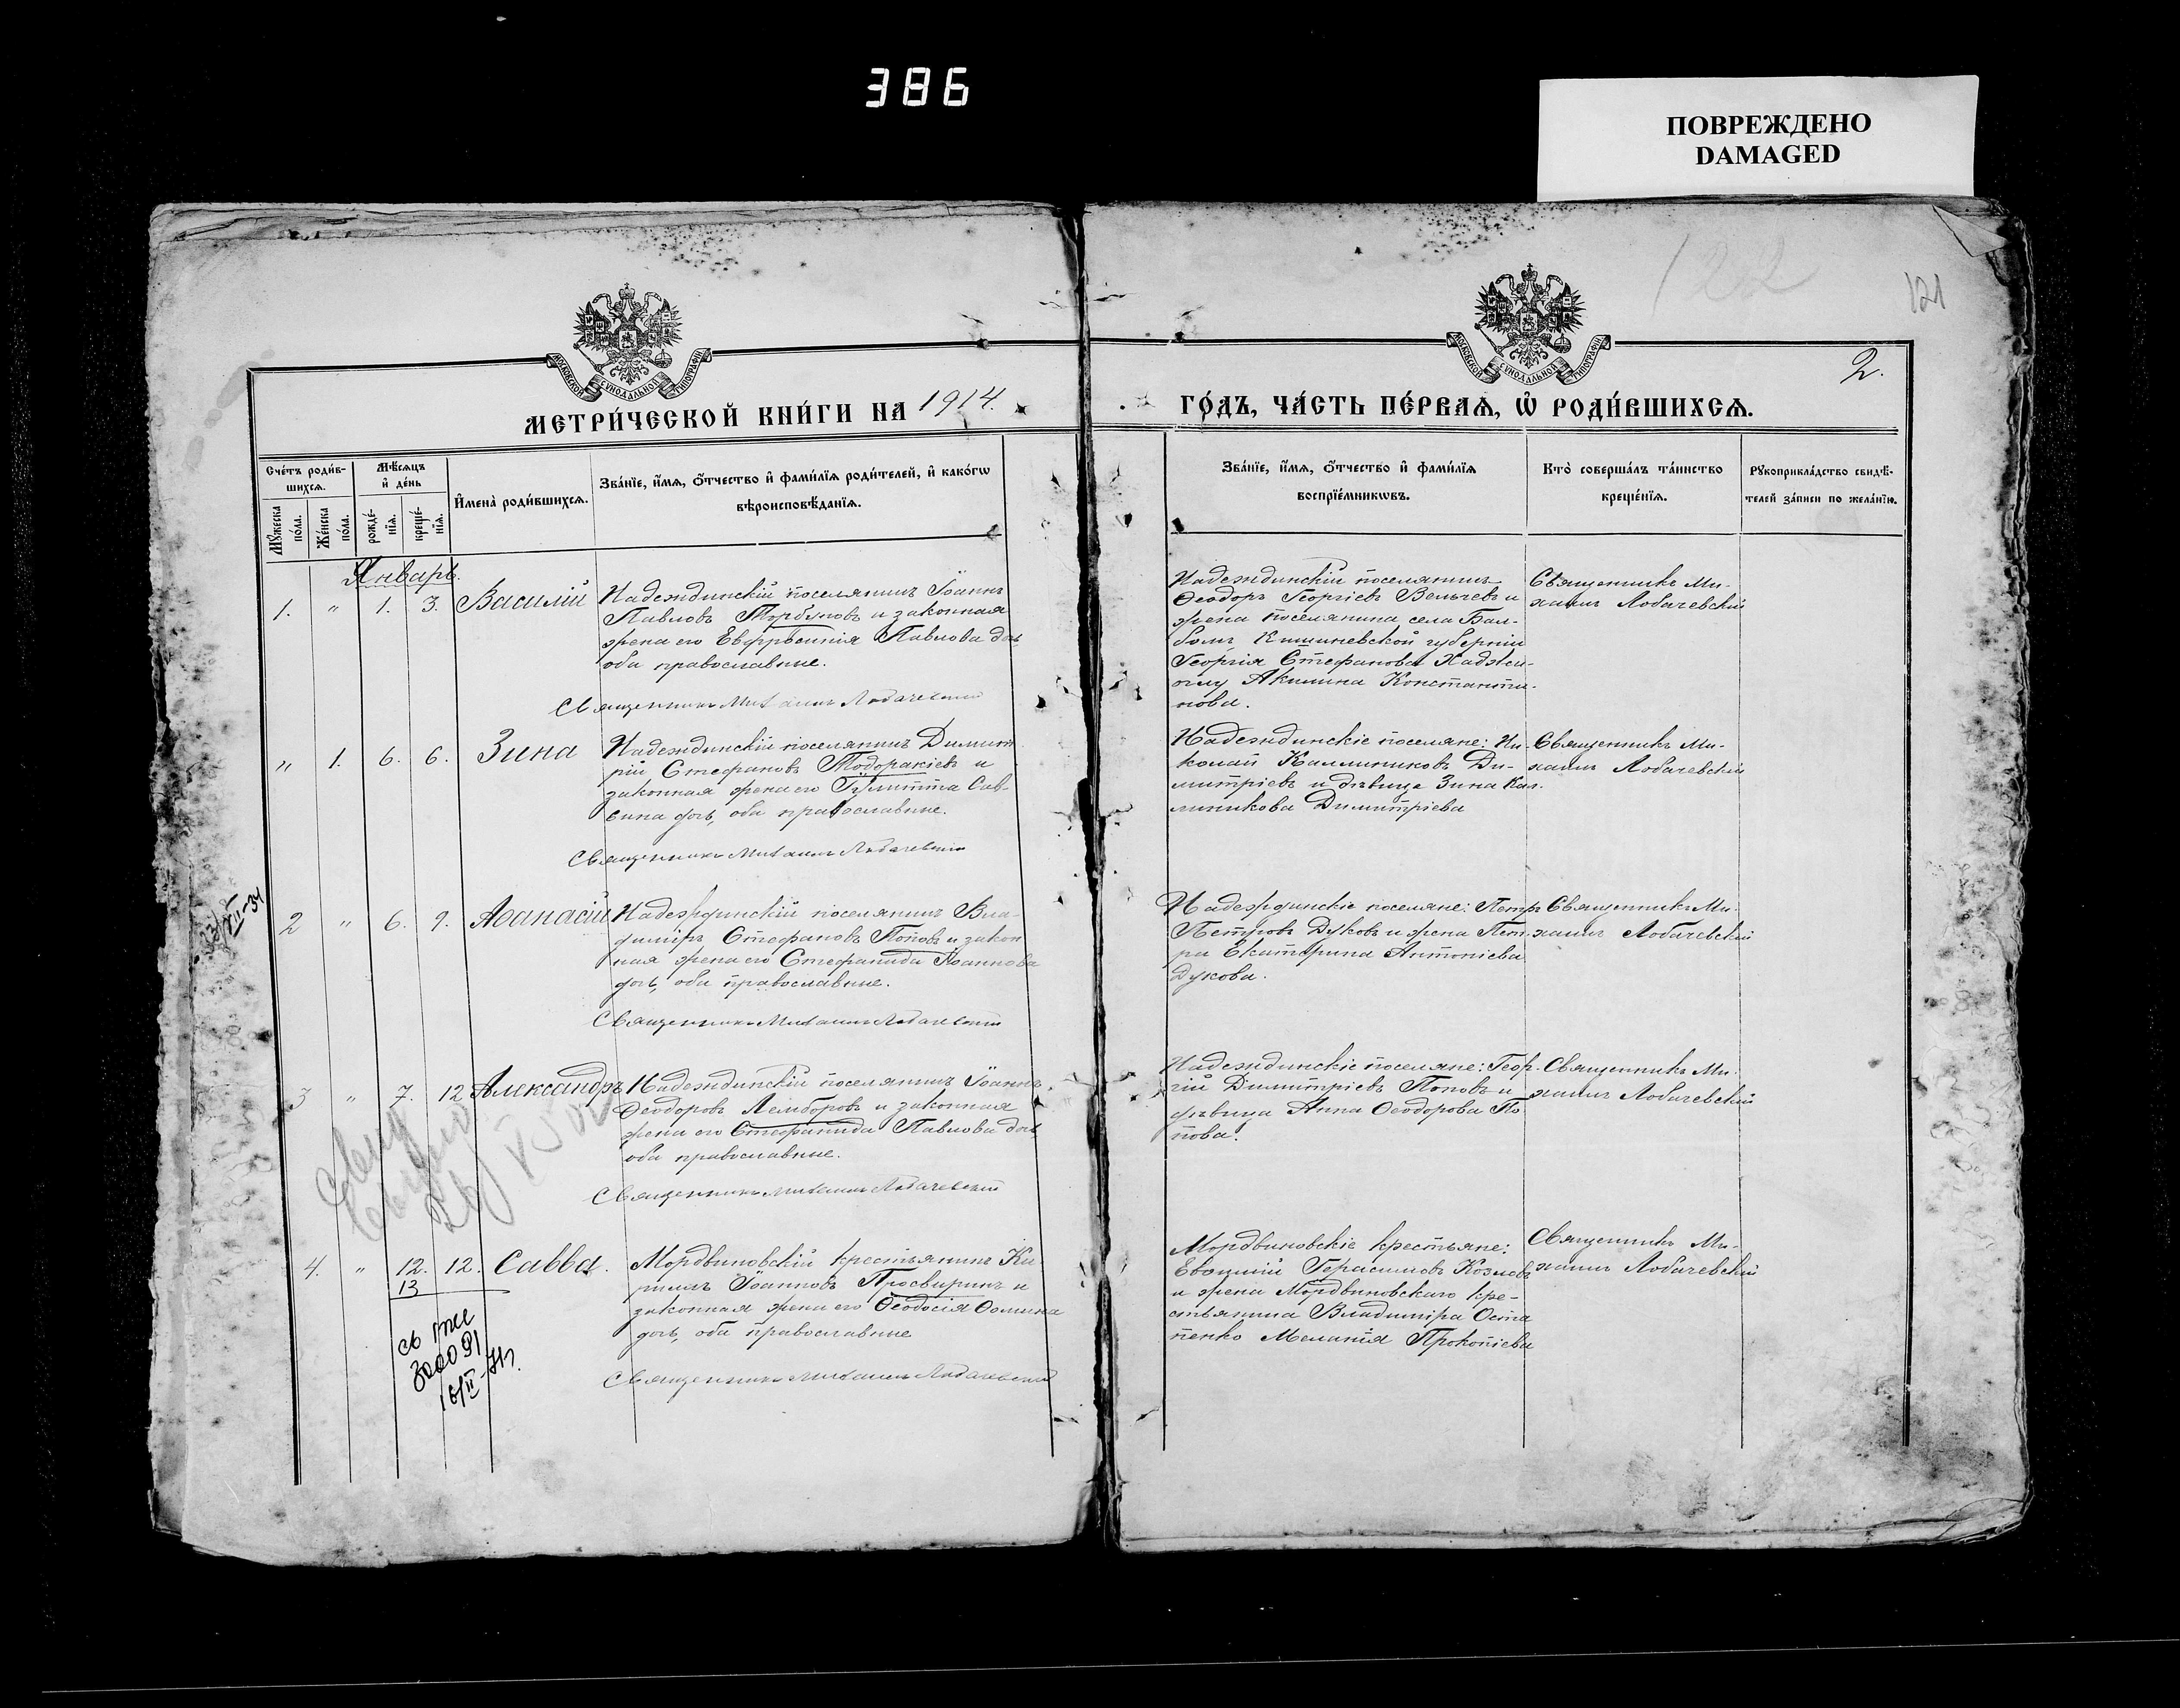 386
ПОВРЕЖДЕНО
DAMAGED
122
121
2.
МОСКОВСКОЙ СѴНОДАЛЬНОЙ ТИПОГРАФІИ
МОСКОВСКОЙ СѴНОДАЛЬНОЙ ТИПОГРАФІИ
МЕТРИ́ЧЕСКОЙ КНИ́ГИ НА 1914.
ГО́ДЪ, ЧА́СТЬ ПЕ́РВАѦ, Ѡ҆ РОДИ́ВШИХСѦ.
Сче́тъ роди́в-
шихсѧ.
Мѣ́сѧцъ
и҆ де́нь
Мꙋ́жеска
по́ла.
Же́нска
по́ла.
рожде́-
нїѧ.
креще́-
нїѧ.
И҆мена̀ роди́вшихсѧ.
Зва́нїе, и҆́мѧ, ѻ҆́тчество и҆ фами́лїѧ роди́телей, и҆ како́гѡ
вѣроисповѣ́данїѧ.
Зва́нїе, и҆́мѧ, ѻ҆́тчество и҆ фами́лїѧ
воспрїе́мникѡвъ.
Кто̀ соверша́лъ та́инство
креще́нїѧ.
Рꙋкоприкла́дство свидѣ́-
телей за́писи по жела́нїю.
Январь.
1. " 1. 3. Василій
Надеждинскій поселянинъ Іоаннъ
Павловъ Торбуновъ и законная
жена его Евфросинія Павлова дочь
оба православные.
Священникъ Михаилъ Лобачевскій
Надеждинскій поселянинъ
Ѳеодоръ Георгіевъ Вельчевъ и
жена поселянина села Бал-
Кишиневской губерніи
Георгія Стефанова Хаджи-
оглу Акилина Константи-
нова.
Священникъ Ми-
хаилъ Лобачевскій
" 1. 6. 6. Зина
Надеждинскій поселянинъ Димит
рій Стефановъ Тодоракіевъ и
законная жена его Сав-
вина дочь, оба православные.
Священникъ Михаилъ Лобачевскій
Надеждинскіе поселяне: Ни-
колай Каллиниковъ Ди-
митріевъ и дѣвица Зина Кал-
линикова Димитріева
Священникъ Ми-
хаилъ Лобачевскій
2 " 6. 9. Аѳанасій
Надеждинскій поселянинъ Вла-
диміръ Стефановъ Поповъ и закон
ная жена его Стефанида Іоаннова
дочь, оба православные.
Священникъ Михаилъ Лобачевскій
Надеждинскіе поселяне: Петръ
Петровъ Дуковъ и жена Пет-
ра Екатерина Антоніева
Дукова.
Священникъ Ми-
хаилъ Лобачевскій
3 " 7. 12 Александръ
Надеждинскій поселянинъ Іоаннъ
Ѳеодоровъ Лемборовъ и законная
жена его Стефанида Павлова дочь
оба православные.
Священникъ Михаилъ Лобачевскій
Надеждинскіе поселяне: Геор-
гій Димитріевъ Поповъ и
дѣвица Анна Ѳеодорова По
пова.
Священникъ Ми-
хаилъ Лобачевскій
4. " 12. 12. Савва.
13
Мордвиновскій крестьянинъ Ки
риллъ Іоанновъ Просвиринъ и
законная жена его Ѳеодосія Ѳомина
дочь, оба православные
Священникъ Михаилъ Лобачевскій
Мордвиновскіе крестьяне:
Евѳимій Герасимовъ Козловъ
и жена Мордвиновскаго кре-
стьянина Владиміра Оста
пенко Меланія Прокопіева
Священникъ Ми-
хаилъ Лобачевскій